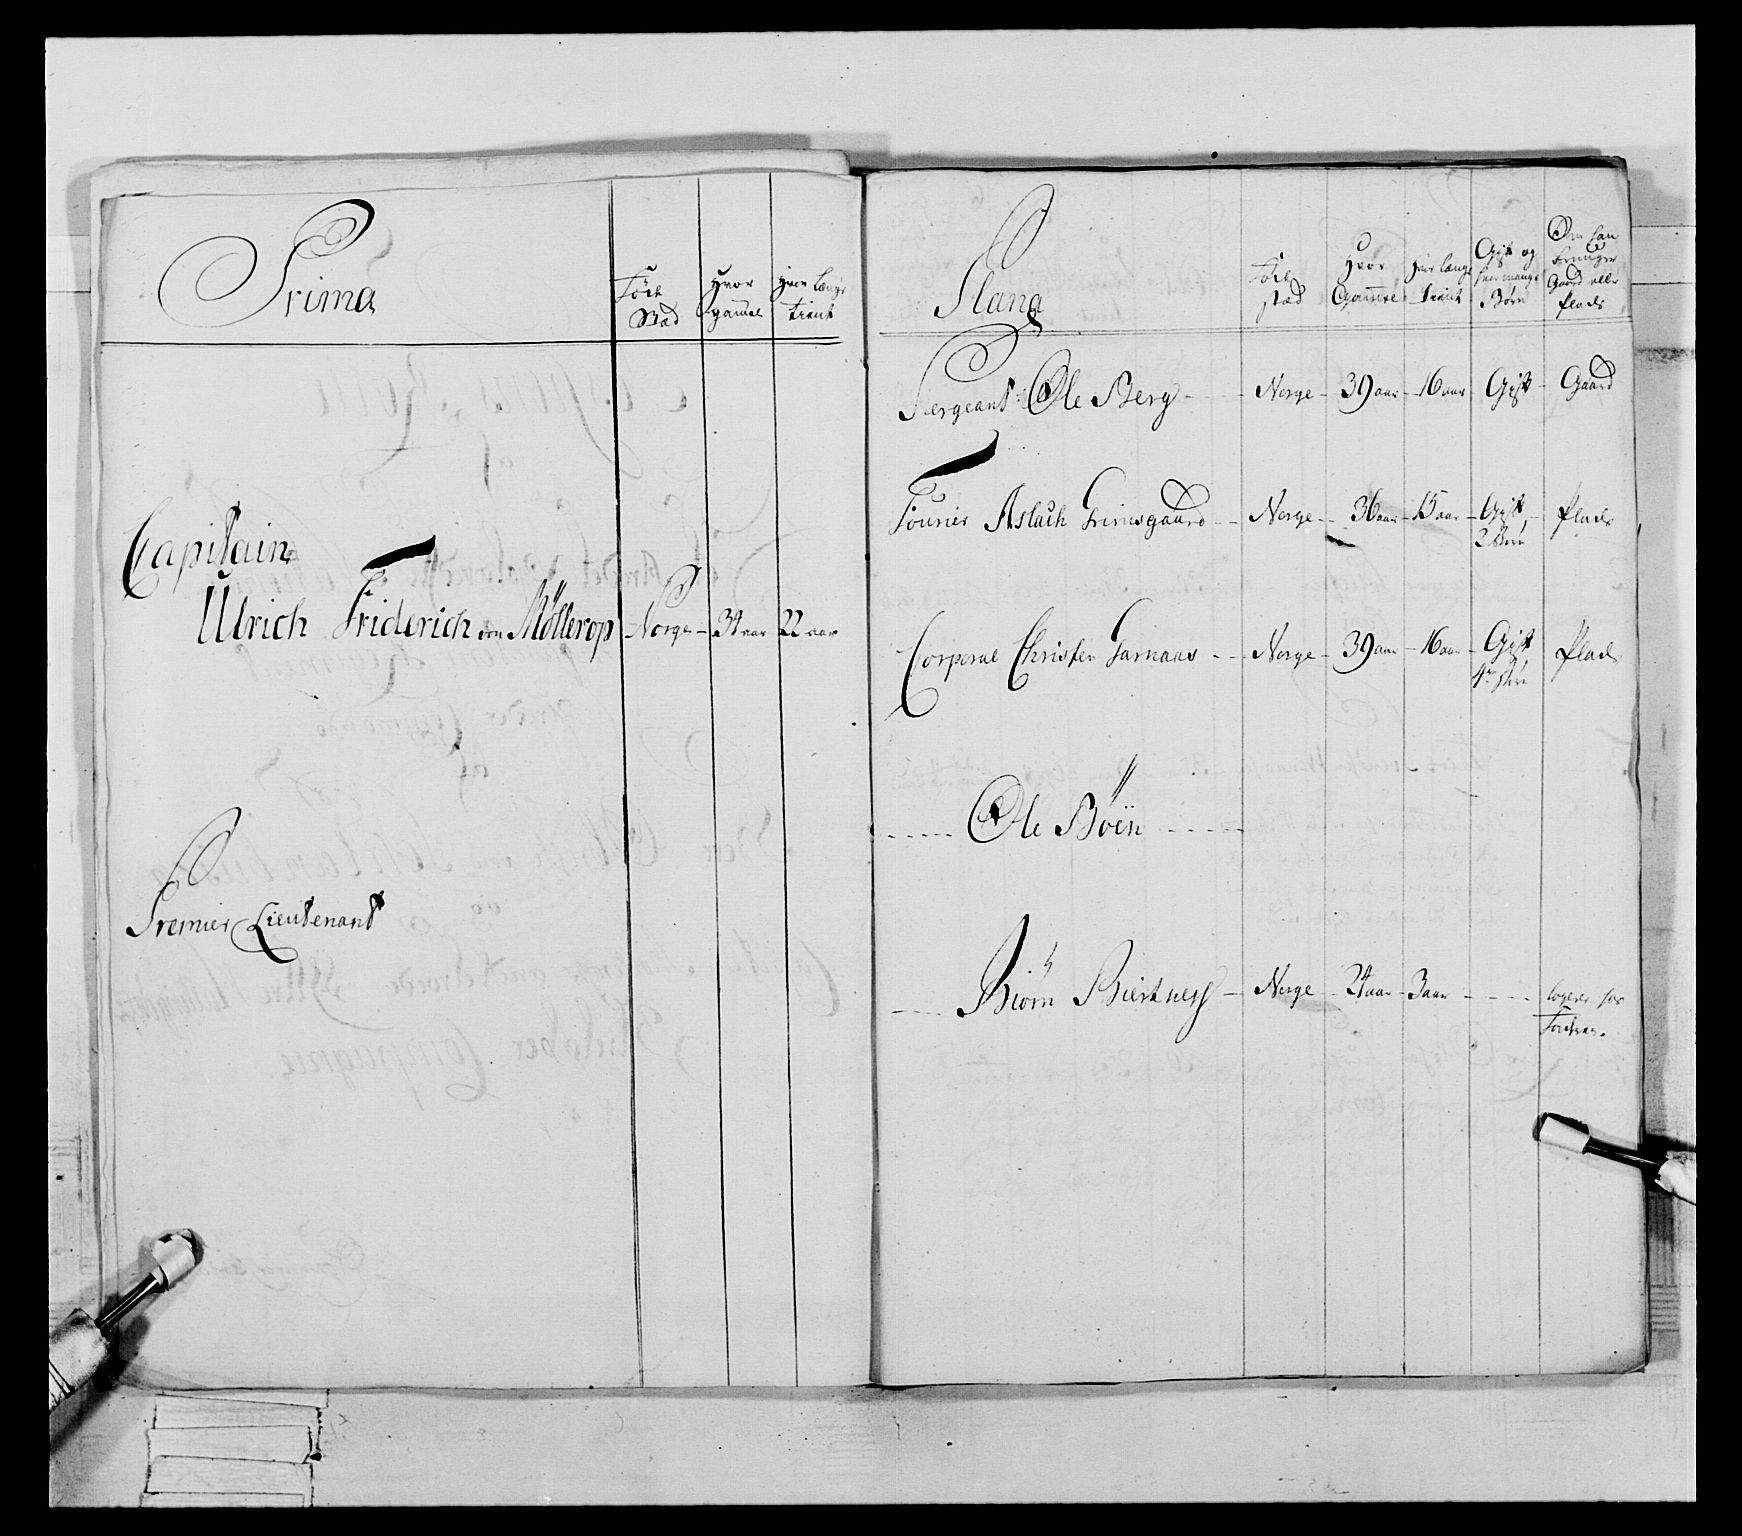 Prima
Föde
Stad
Hvor
gammel
Hvor Længe
tient
Capitain
Ulrich Friderich von Möllerop Norge 34 aar 22 aar
Premier Lieutenant
Plana
Föde
stad
Hvor
Gammel
Hvor længe
tient
Gift og
hvor mange
Børn
Om han
bruuger
Gaard eller
Plads
Sergeant: Ole Berg Norge 39 aar 16 aar Gift Gaard
Fourier Aslach Grimsgaard Norge 36 aar 15 aar Gift Plads
2 Børn
Corporal Christen Garnaas Norge 39 aar 16 aar Gift Plads
4 Børn
Ole Böen
Biörn Biertness Norge 24 aar 3 aar logerer hos